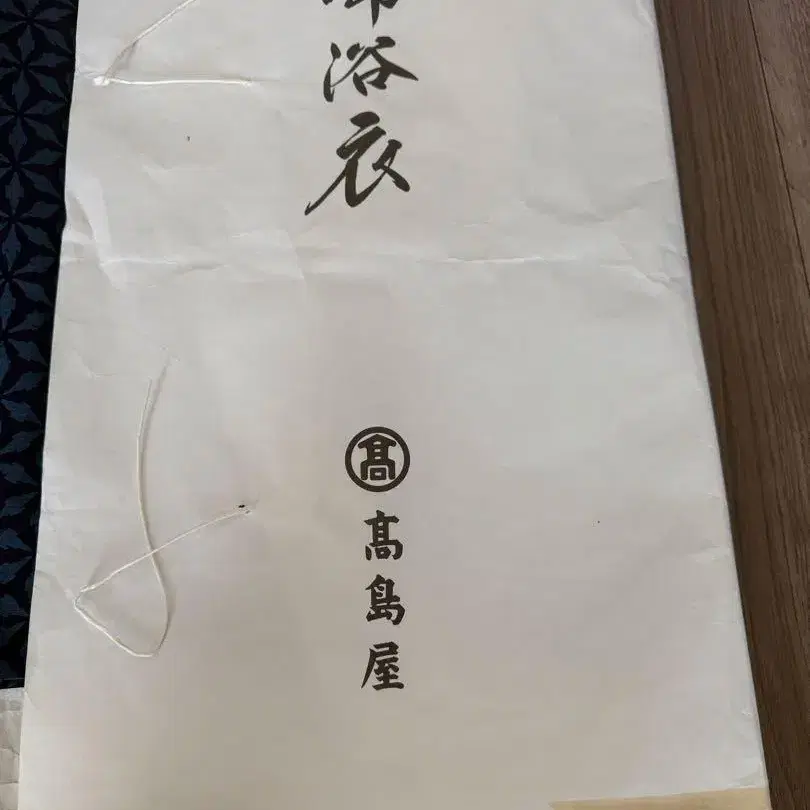 浴衣
髙
髙島屋